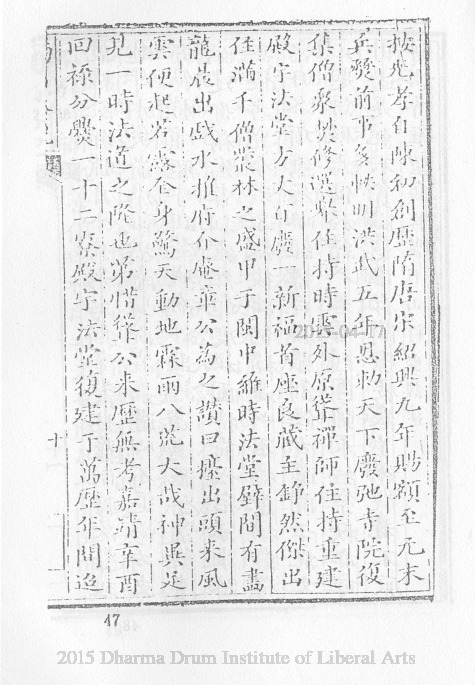 按光孝自陳初創歷隋唐宋紹興九年賜額至元末
兵燹前事多帙明洪武五年恩勅天下廢弛寺院復
集僧眾焚修選舉住持時雲外原㠇禪師住持重建
殿宇法堂方丈百廢一新福首座良藏主錚然傑出
住滿千僧叢林之盛甲于閩中維時法堂壁間有畵
龍晨出戲水推府介庵章公為之讚曰擡出頭來風
雲便起若露全身驚天動地霖雨八荒大哉神異足
見一時法道之隆也第惜㠇公來歷無考嘉靖辛酉
回祿分爨一十二寮殿宇法堂復建于萬歷年間迨
十
2015-04-17
47
2015 Dharma Drum Institute of Liberal Arts